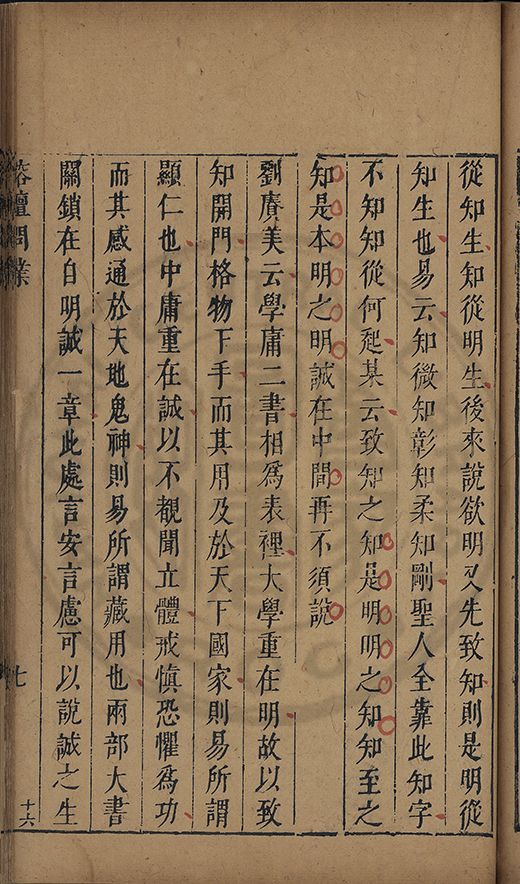 從知生知從明生後來說欲明又先致知則是明從
知生也易云知微知彰知柔知剛聖人全靠此知字
不知知從何起某云致知之知是明明之知知至之
知是本明之明誠在中間再不須說
劉賡美云學庸二書相為表裡大學重在明故以致
知開門格物下手而其用及於天下國家則易所謂
顯仁也中庸重在誠以不覩聞立體戒慎恐懼為功
而其感通於天地鬼神則易所謂藏用也兩部大書
關鎖在自明誠一章此處言安言慮可以說誠之生
榕壇問業
七
十六